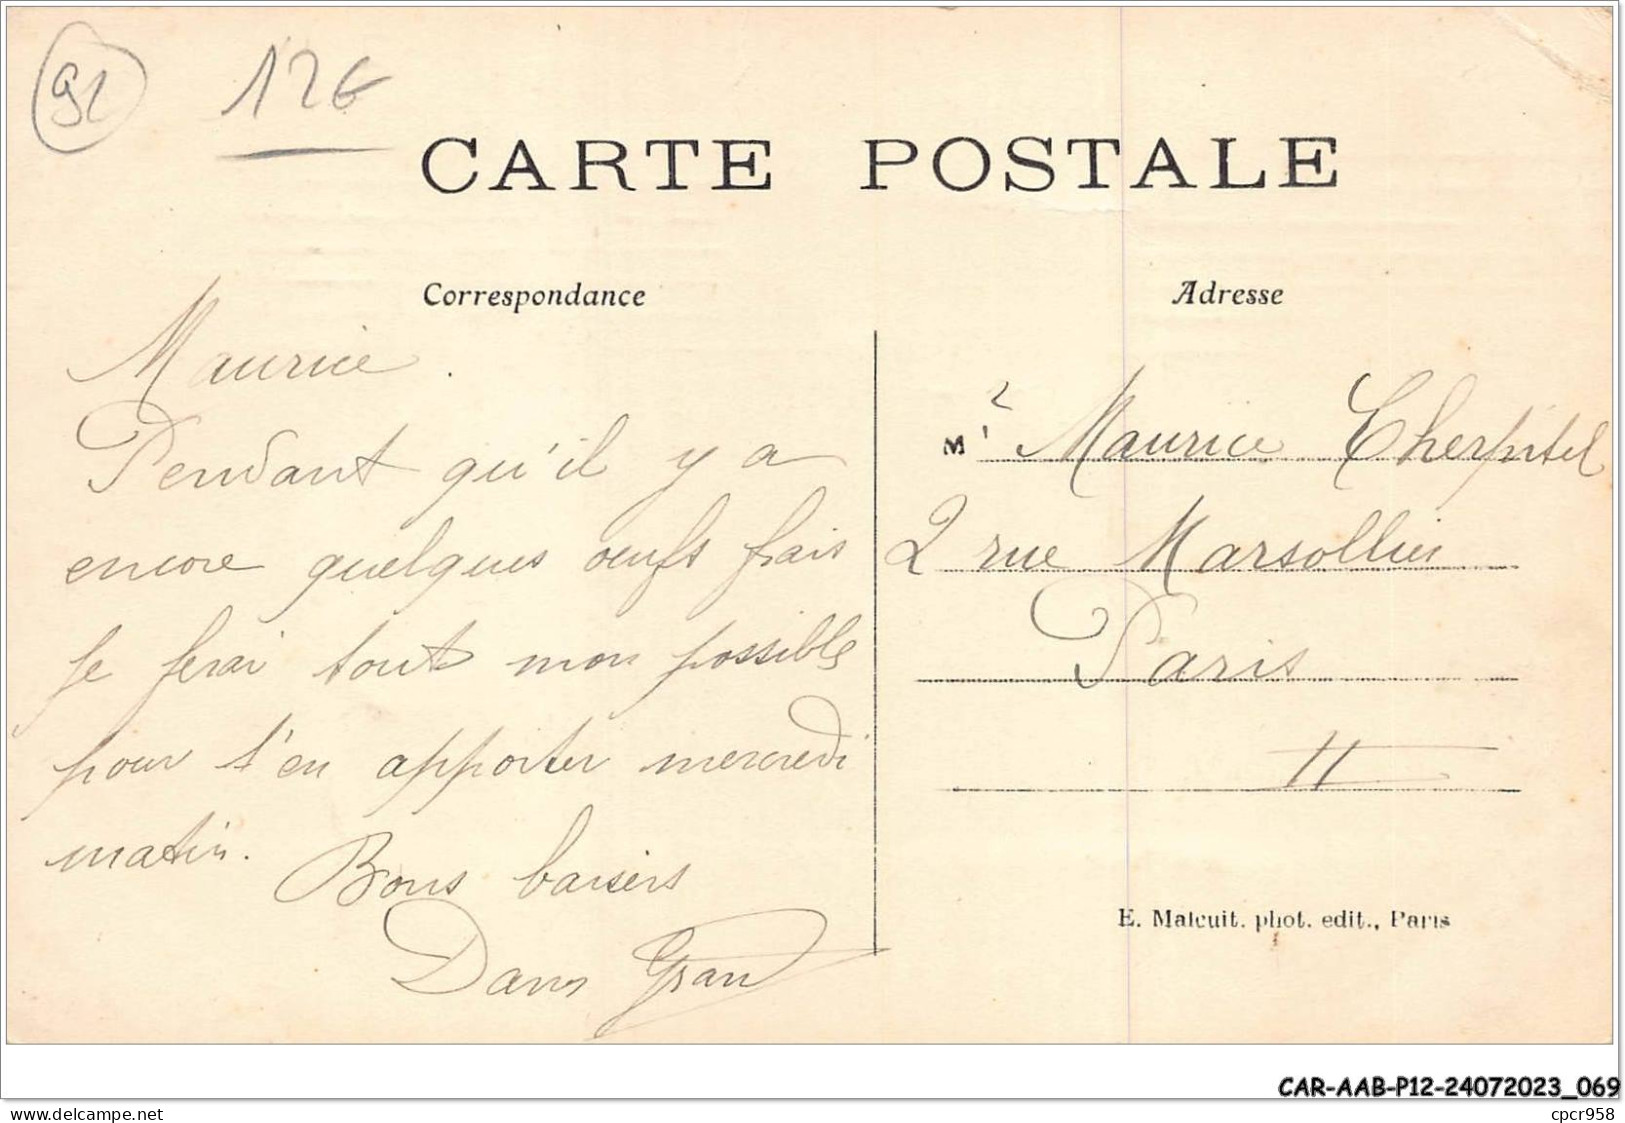 91
12€
CARTE POSTALE
Correspondance
Adresse
Maurice.
Pendant qu'il y a
encore quelques oeufs frais
je ferai tout mon possible
pour t'en apporter mercredi
matin.
Bons baisers
Gran
Mr Maurice Cherpitel
2 rue Marsollier
Paris
II
E. Malcuit. phot. edit., Paris
CAR-AAB-P12-24072023_069
www.delcampe.net
cpcr958